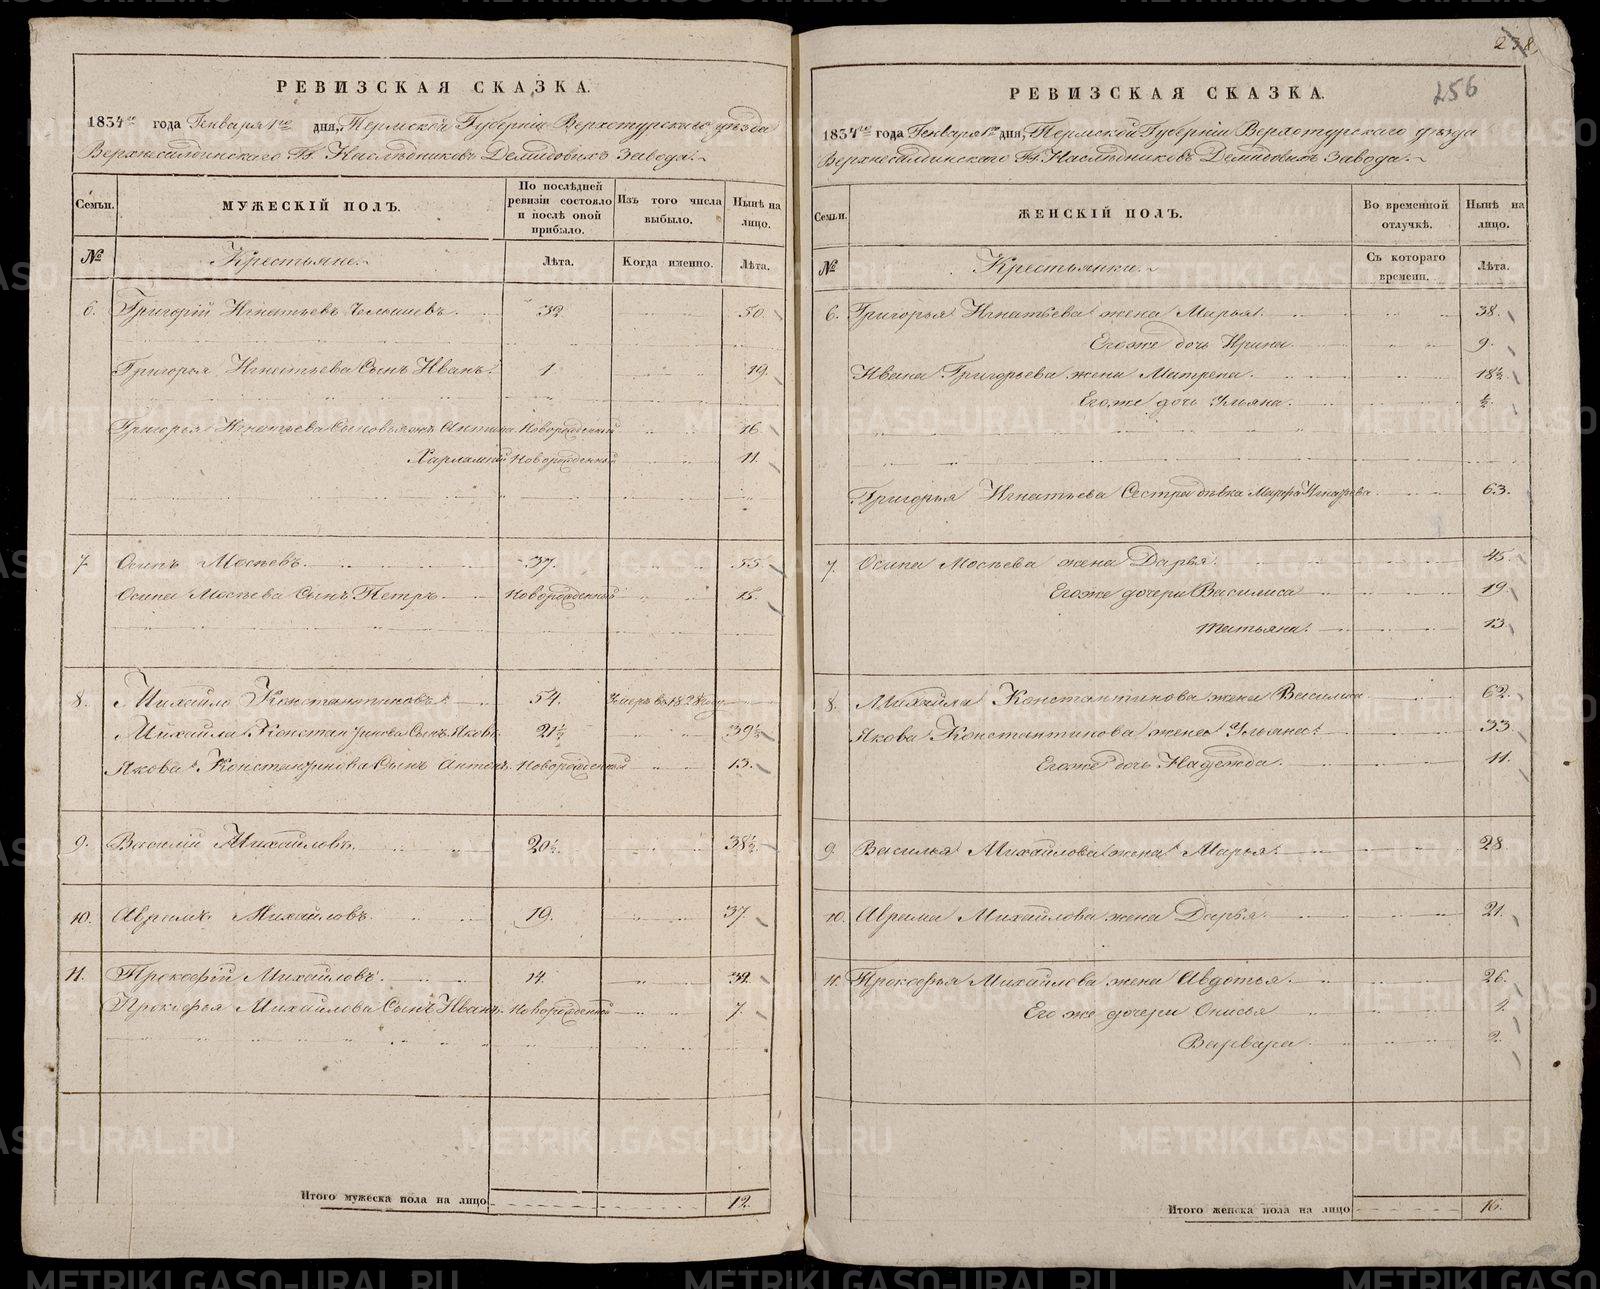 238
256
РЕВИЗСКАЯ СКАЗКА.
1834го года Генваря 1го дня, Пермской Губерніи Верхотурскаго уѣзда
Верхнесалдинскаго Гг. Наслѣдниковъ Демидовыхъ Завода.
Семьи. МУЖЕСКІЙ ПОЛЪ. По послѣдней ревизіи состояло и послѣ оной прибыло. Изъ того числа выбыло. Нынѣ на лицо.
№ Крестьяне. Лѣта. Когда именно. Лѣта.
6. Григорій Игнатьевъ 32 50.
Григорья Игнатьева Сынъ Иванъ. 1 19.
Григорья Игнатьева Сыновья Антипа Новорожденный 16.
Харлампій Новорожденный 11.
7. Осипъ Мосѣевъ. 37. 55.
Осипа Мосѣева Сынъ Петръ Новорожденный 15.
8. Михайло Константиновъ. 54. Умеръ въ 1828 году
Михайла Константинова Сынъ Яковъ. 21½ 39½
Якова Константинова Сынъ Антонъ. Новорожденный 13.
9. Василій Михайловъ. 20½. 38½.
10. Аврамъ Михайловъ. 19. 37.
11. Прокофій Михайловъ. 14. 32.
Прокофья Михайлова Сынъ Иванъ. Новорожденный 7.
Итого мужеска пола на лицо 12.
РЕВИЗСКАЯ СКАЗКА.
1834го года Генваря 1го дня, Пермской Губерніи Верхотурскаго уѣзда
Верхнесалдинскаго Гг. Наслѣдниковъ Демидовыхъ Завода.
Семьи. ЖЕНСКІЙ ПОЛЪ. Во временной отлучкѣ. Нынѣ на лицо.
№ Крестьянки. Съ котораго времени. Лѣта.
6. Григорья Игнатьева жена Марья. 38.
Его же дочь Ирина. 9.
Ивана Григорьева жена Матрена. 18½.
Его же дочь Ульяна. ½.
Григорья Игнатьева Сестра дѣвка Марфа Игнатьева. 63.
7. Осипа Мосѣева жена Дарья. 45.
Его же дочери Василиса 19.
Татьяна. 13.
8. Михайла Константинова жена Василиса 62.
Якова Константинова жена Ульяна. 33.
Его же дочь Надежда. 11.
9. Василья Михайлова жена Марья. 28.
10. Аврама Михайлова жена Дарья. 21.
11. Прокофья Михайлова жена Авдотья. 26.
Его же дочери Анисья 4.
Варвара. 2.
Итого женска пола на лицо 16.
METRIKI.GASO-URAL.RU